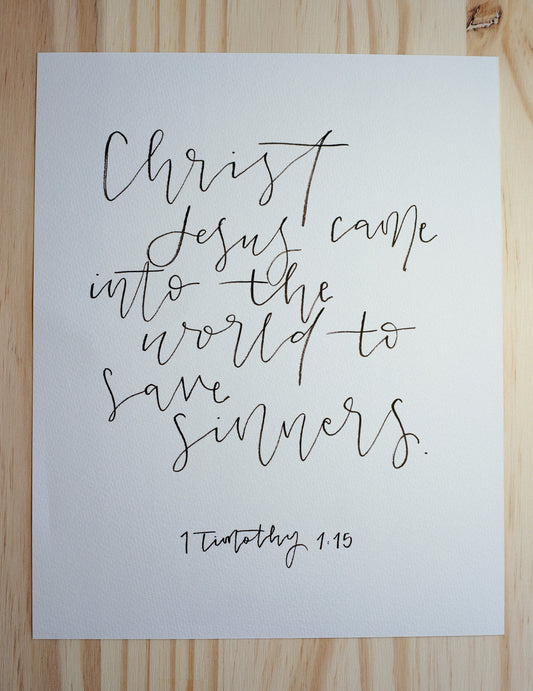 Christ
Jesus came
into the
world to
save
sinners.
1 Timothy 1:15